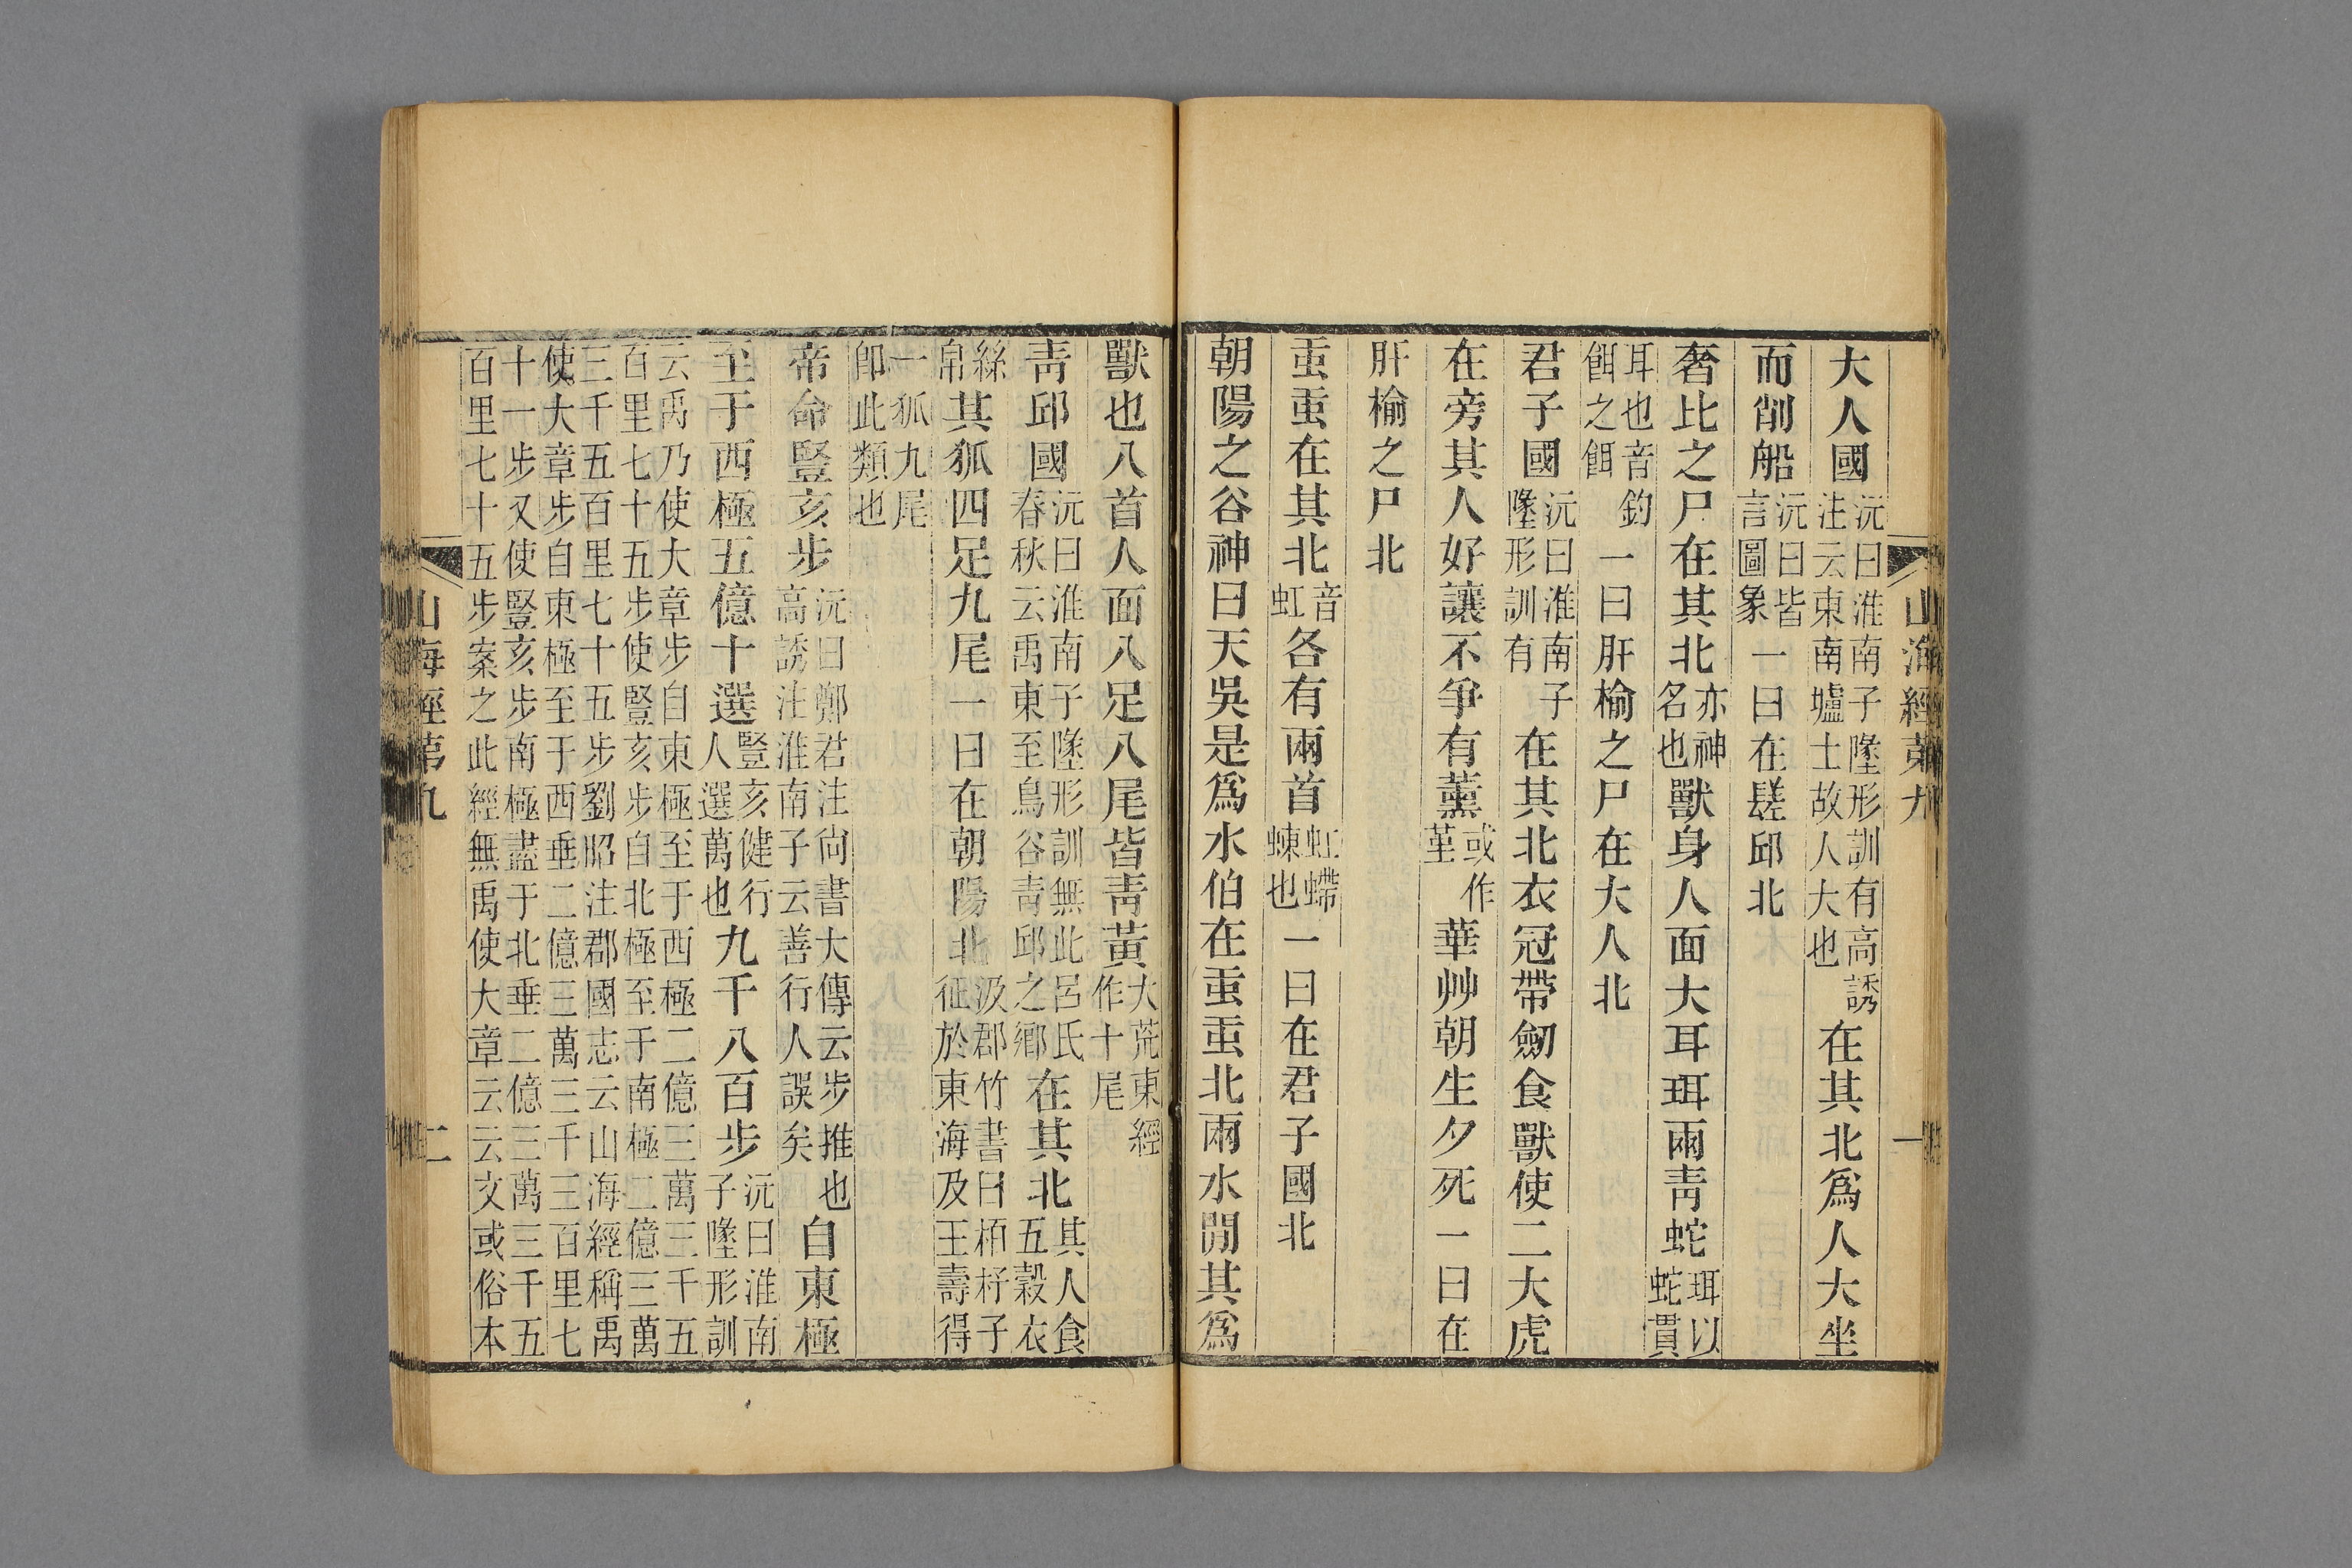 大人國沅曰淮南子墬形訓有高誘注云東南墟土故人大也在其北爲人大坐
而削船沅曰皆言圖象一曰在𨲠邱北
奢比之尸在其北亦神名也獸身人面大耳珥兩靑蛇珥以蛇貫
耳也音釣餌之餌一曰肝榆之尸在大人北
君子國沅曰淮南子墬形訓有在其北衣冠帶劒食獸使二大虎
在旁其人好讓不爭有薰或作堇華艸朝生夕死一曰在
肝榆之尸北
䖝䖝在其北音虹各有兩首虹螮蝀也一曰在君子國北
朝陽之谷神曰天吳是爲水伯在䖝䖝北兩水閒其爲
山海經第九
一
獸也八首人面八足八尾皆靑黃大荒東經作十尾
靑邱國沅曰淮南子墬形訓無此呂氏春秋云禹東至鳥谷靑邱之鄕在其北其人食五穀衣
絲帛其狐四足九尾一曰在朝陽北汲郡竹書曰栢杼子征於東海及王壽得
一狐九尾卽此類也
帝命豎亥步沅曰鄭君注尙書大傳云步推也高誘注淮南子云善行人誤矣自東極
至于西極五億十選豎亥健行人選萬也九千八百步沅曰淮南子墬形訓
云禹乃使大章步自東極至于西極二億三萬三千五
百里七十五步使豎亥步自北極至于南極二億三萬
三千五百里七十五步劉昭注郡國志云山海經稱禹
使大章步自東極至于西垂二億三萬三千三百里七
十一步又使豎亥步南極盡于北垂二億三萬三千五
百里七十五步案之此經無禹使大章云云文或俗本
山海經第九
二